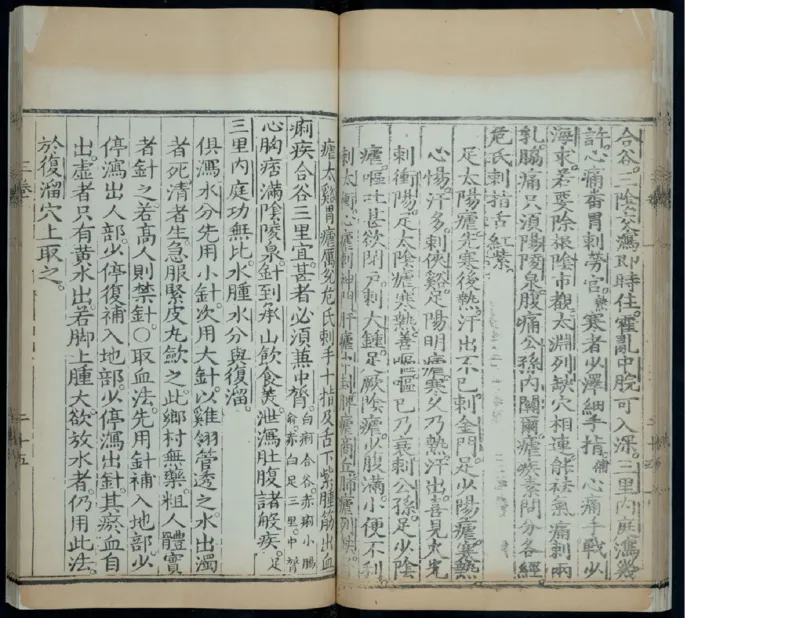 合谷。三陰交瀉即時住。霍亂中脘可入深。三里內庭瀉幾
許。心痛番胃刺勞宮。熱寒者少澤細手指。補心痛手戰少
海求。若要除根陰市覩。太淵列缺穴相連。能祛氣痛刺兩
乳。脇痛只須陽陵泉。腹痛公孫內關爾。瘧疾素問分各經
危氏刺指舌紅紫。
足太陽瘧先寒後熱。汗出不已刺金門。足少陽瘧寒熱
心惕。汗多。刺俠谿。足陽明瘧寒久乃熱。汗出喜見火光
刺衝陽。足太陰瘧寒熱善嘔。嘔已乃衰刺公孫。足少陰
瘧嘔吐甚欲閉戶。刺大鍾。足厥陰瘧少腹滿。小便不利
刺太衝。心瘧刺神門。肝瘧中封。脾瘧商丘。肺瘧列缺。
瘧太谿。胃瘧厲兌。危氏刺手十指及舌下紫腫筋出血
痢疾合谷三里宜。甚者必須兼中膂。白痢合谷。赤痢小腸
俞。赤白足三里。中膂
心胸痞滿陰陵泉。針到承山飲食美。泄瀉肚腹諸般疾。足
三里內庭功無比。水腫水分與復溜。
俱瀉水分先用小針。次用大針。以雞翎管透之。水出濁
者死。清者生。急服緊皮丸歛之。此鄉村無藥。粗人體實
者針之。若高人則禁針。○取血法。先用針補入地部。少
停瀉出人部。少停復補入地部。少停瀉出針。其瘀血自
出。虛者只有黃水出。若脚上腫大。欲放水者。仍用此法。
於復溜穴上取之。
三卷
二十五